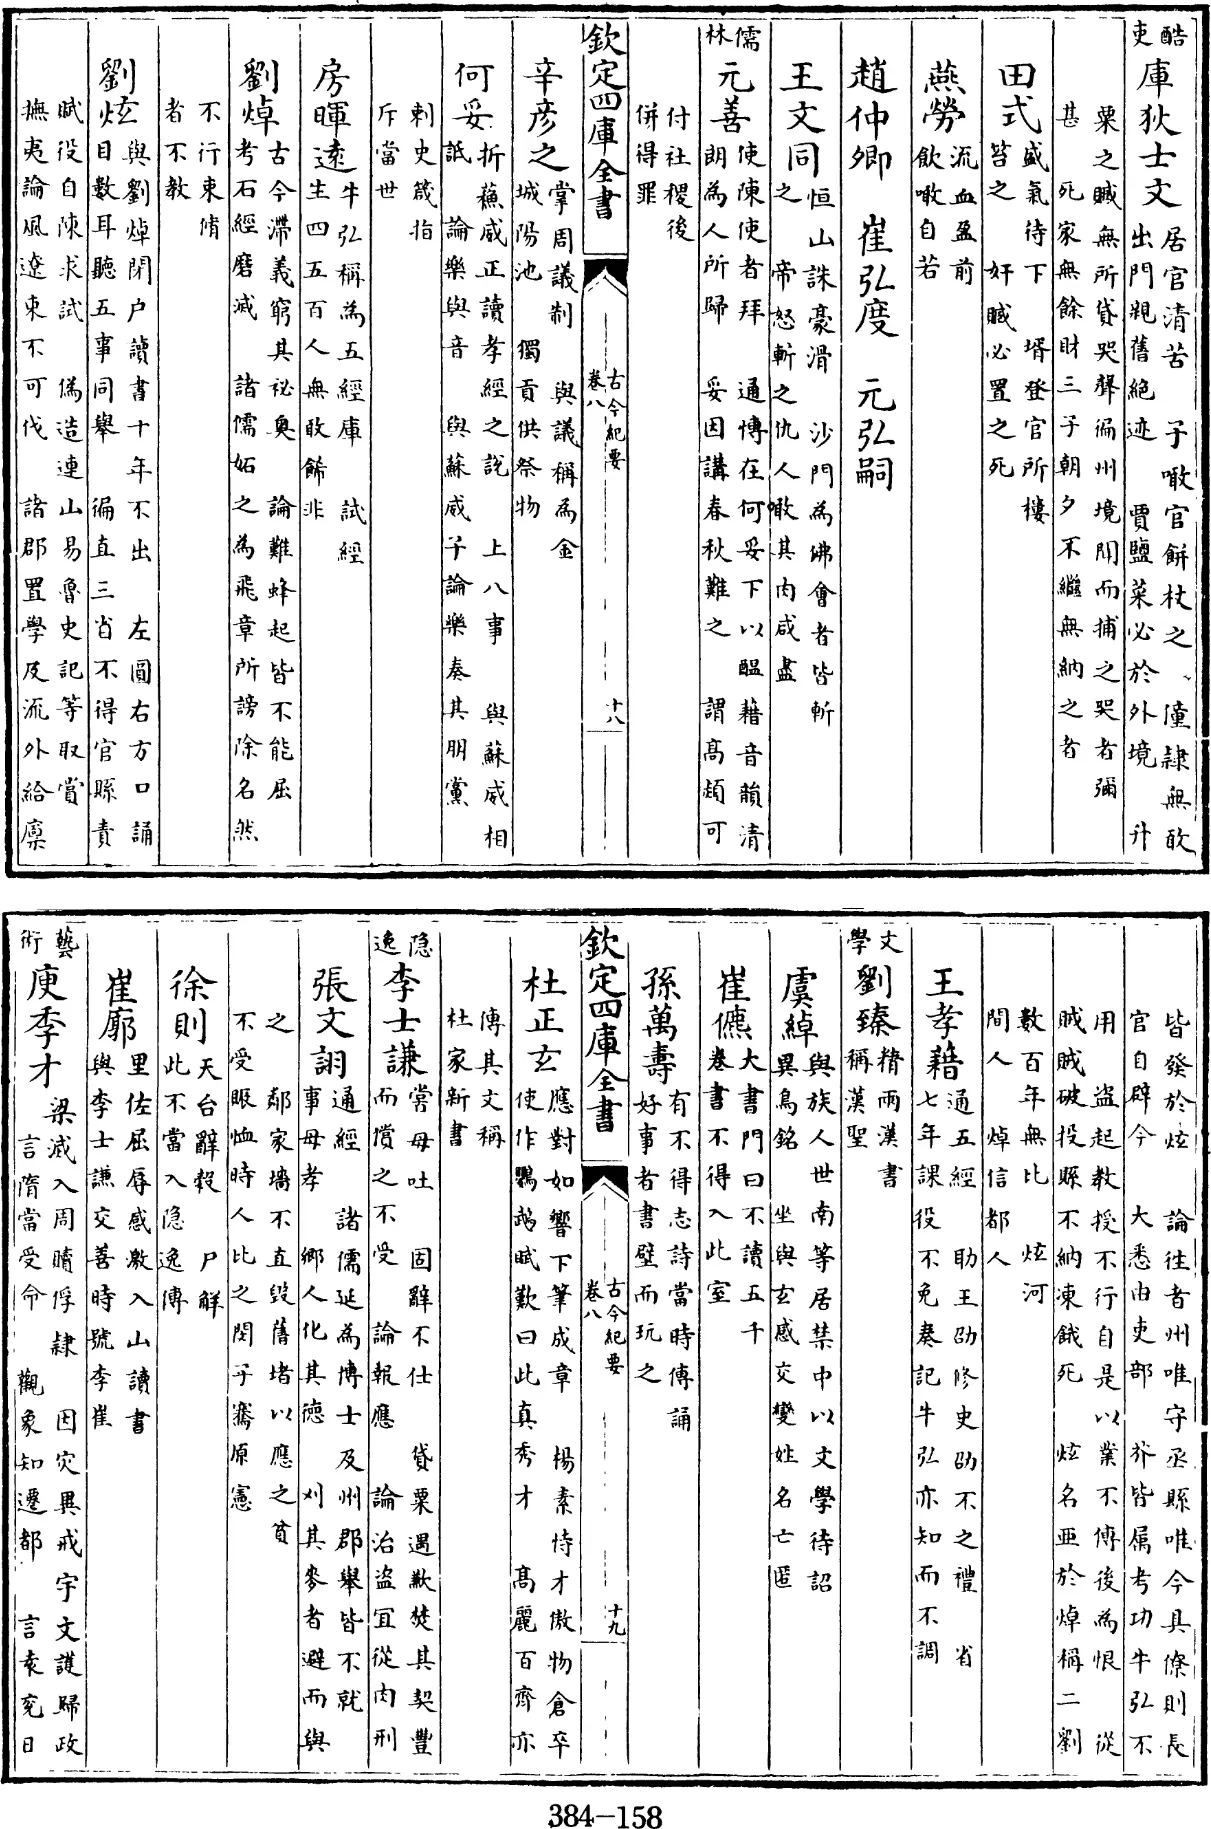 酷吏
庫狄士文
居官清苦　子噉官餅杖之　僮隸無敢
出門親舊絕迹　賈鹽菜必於外境　升
粟之贓無所貸哭聲徧州境聞而捕之哭者彌
甚　死家無餘財三子朝夕不繼無納之者
田式
盛氣待下　壻登官所樓
笞之　奸贓必置之死
燕勞
流血盈前
飲噉自若
趙仲卿　崔弘度　元弘嗣
王文同
恒山誅豪滑　沙門為佛會者皆斬
之　帝怒斬之仇人噉其肉咸盡
儒林
元善
使陳使者拜　通博在何妥下以醖藉音韻清
朗為人所歸　妥因講春秋難之　謂高熲可
付社稷後
併得罪
欽定四庫全書
古今紀要
卷八
十八
辛彦之
掌周議制　與議稱為金
城陽池　獨貢供祭物
何妥
折蘓威正讀孝經之說　上八事　與蘇威相
詆　論樂與音　與蘇威子論樂奏其朋黨
刺史箴指
斥當世
房暉遠
牛弘稱為五經庫　試經
生四五百人無敢餙非
劉焯
古今滯義窮其祕奥　論難蜂起皆不能屈
考石經磨滅　諸儒妬之為飛章所謗除名然
不行束脩
者不教
劉炫
與劉焯閉户讀書十年不出　左圓右方口誦
目數耳聽五事同舉　徧直三省不得官縣責
賦役自陳求試　偽造連山易魯史記等取賞
撫夷論風遼東不可伐　諸郡置學及流外給廩
皆發於炫　論往者州唯守丞縣唯令具僚則長
官自辟今　大悉由吏部　外皆屬考功牛弘不
用　盗起教授不行自是以業不傳後為恨　從
賊賊破投縣不納凍餓死　炫名亞於焯稱二劉
數百年無比　炫河
間人　焯信都人
王孝籍
通五經　助王劭修史劭不之禮　省
七年課役不免奏記牛弘亦知而不調
文學
劉臻
精兩漢書
稱漢聖
虞綽
與族人世南等居禁中以文學待詔
異鳥銘　坐與玄感交變姓名亡匿
崔儦
大書門曰不讀五千
卷書不得入此室
孫萬壽
有不得志詩當時傳誦
好事者書壁而玩之
欽定四庫全書
古今紀要
卷八
十九
杜正玄
應對如響下筆成章　楊素恃才傲物倉卒
使作鸚鵡賦歎曰此真秀才　高麗百齊亦
傳其文稱
杜家新書
隐逸
李士謙
嘗母吐　固辭不仕　貸粟遇歉焚其契豐
而償之不受　論報應　論治盜宜從肉刑
張文詡
通經　諸儒延為博士及州郡舉皆不就
事母孝　鄉人化其德　刈其麥者避而與
之　鄰家墻不直毁舊堵以應之　貧
不受賑恤時人比之閔子騫原憲
徐則
天台辭穀　尸解
此不當入隐逸傳
崔廓
里佐屈辱感激入山讀書
與李士謙交善時號李崔
藝術
庾季才
梁滅入周贖俘隸　因灾異戒宇文護歸政
言隋當受命　觀象知遷都　言袁充日
384—158